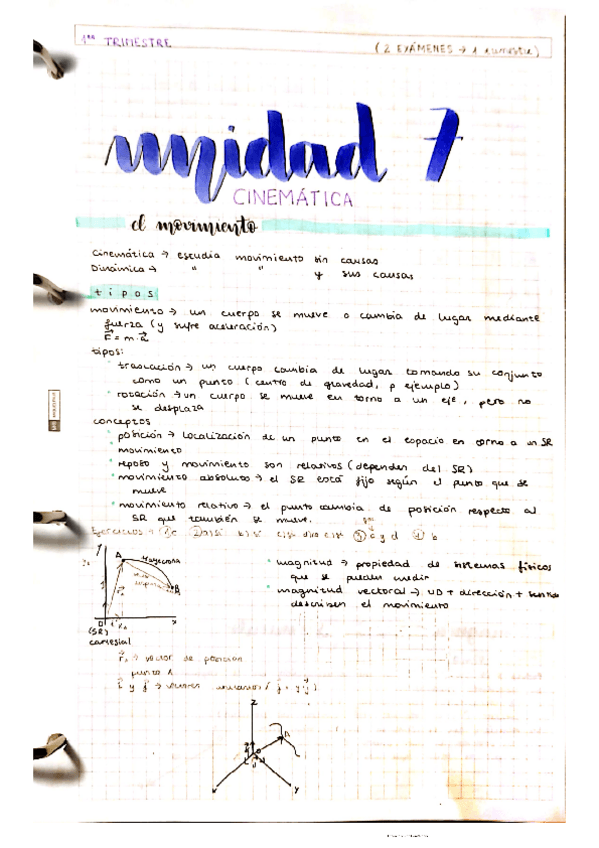 1er TRIMESTRE (2 EXÁMENES → 1 trimestre)
unidad 7
CINEMÁTICA
el movimiento
Cinemática → estudia movimiento sin causas
Dinámica → " " y sus causas
tipos
movimiento → un cuerpo se mueve o cambia de lugar mediante
fuerza (y sufre aceleración)
F = m·a
tipos:
traslación → un cuerpo cambia de lugar tomando su conjunto
como un punto (centro de gravedad, p ejemplo)
rotación → un cuerpo se mueve en torno a un eje, pero no
se desplaza
conceptos
posición → localización de un punto en el espacio en torno a un SR
movimiento
reposo y movimiento son relativos (dependen del SR)
movimiento absoluto → el SR está fijo según el punto que se
mueve
movimiento relativo → el punto cambia de posición respecto al
SR que también se mueve.
Ejercicios
y
A
trayectoria
B
O
x
(SR)
cartesial
magnitud → propiedad de sistemas físicos
que se pueden medir
magnitud vectorial → UD + dirección + sentido
describen el movimiento
→ vector de posición
punto A
i y j → vectores unitarios
z
A
y